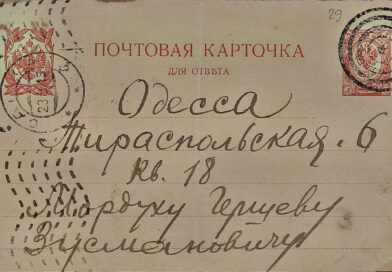 29
ПОЧТОВАЯ КАРТОЧКА
ДЛЯ ОТВѢТА
23
Одесса
Тираспольская. 6
Кв. 18
Мордуху Герцеву
Зусмановичу